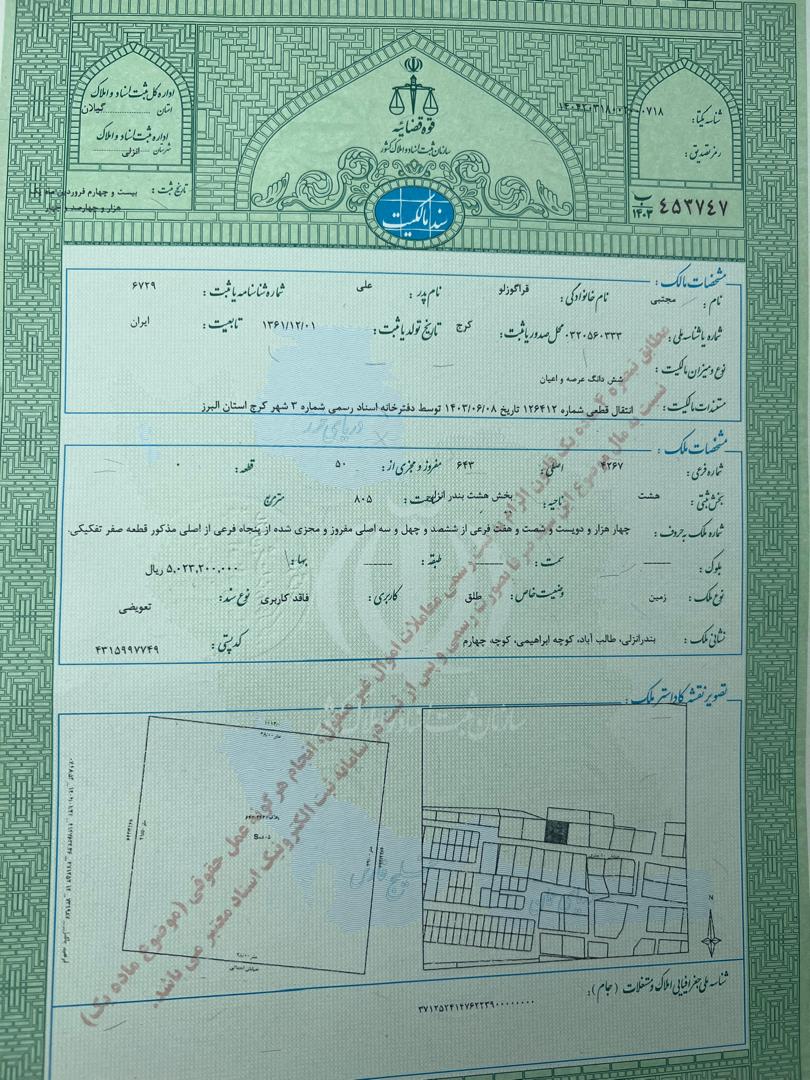 اداره کل ثبت اسناد و املاک
استان گیلان
اداره ثبت اسناد و املاک
شهرستان انزلی
تاریخ ثبت : بیست و چهارم فروردین ماه یک
هزار و چهارصد و چهار
قوه قضائیه
سازمان ثبت اسناد و املاک کشور
سند مالکیت
شناسه یکتا :
رمز تصدیق :
ب ۱۴۰۳ ۴۵۳۷۴۷
مشخصات مالک :
نام : مجتبی نام خانوادگی : قراگوزلو نام پدر : علی شماره شناسنامه یا ثبت : ۶۷۲۹
شماره یا شناسه ملی : ۰۳۲۰۵۶۰۳۳۳ محل صدور یا ثبت : کرج تاریخ تولد یا ثبت : ۱۳۶۱/۱۲/۰۱ تابعیت : ایران
نوع و میزان مالکیت : شش دانگ عرصه و اعیان
مستندات مالکیت : انتقال قطعی شماره ۱۲۶۴۱۲ تاریخ ۱۴۰۳/۰۶/۰۸ توسط دفترخانه اسناد رسمی شماره ۳ شهر کرج استان البرز
دریای خزر
مشخصات ملک :
شماره فرعی : ۴۲۶۷ اصلی : ۶۴۳ مفروز و مجزی از : ۵۰ قطعه : ۰
بخش ثبتی : هشت ناحیه : بخش هشت بندر انزلی مساحت : ۸۰۵ مترمربع
شماره ملک به حروف : چهار هزار و دویست و شصت و هفت فرعی از ششصد و چهل و سه اصلی مفروز و مجزی شده از پنجاه فرعی از اصلی مذکور قطعه صفر تفکیکی.
بلوک : سمت : طبقه : بها : ۵,۰۲۳,۲۰۰,۰۰۰ ریال
نوع ملک : زمین وضعیت خاص : طلق کاربری : فاقد کاربری نوع سند : تعویضی
نشانی ملک : بندرانزلی، طالب آباد، کوچه ابراهیمی، کوچه چهارم کدپستی : ۴۳۱۵۹۹۷۷۴۹
تصویر نقشه کاداستر ملک :
سازمان ثبت اسناد و املاک کشور
S=۸۰۵
خلیج فارس
N
شناسه ملی جغرافیایی املاک و مستغلات (جام) : ۳۷۱۲۵۲۴۱۴۷۶۲۲۳۹۰۰۰۰۰۰۰۰
مطابق تبصره ۴ ماده یک قانون الزام به ثبت رسمی معاملات اموال غیر منقول، انجام هر گونه عمل حقوقی (موضوع ماده یک)
نسبت به مال موضوع این سند صرفا بصورت رسمی و پس از ثبت در سامانه ثبت الکترونیک اسناد معتبر می باشد.